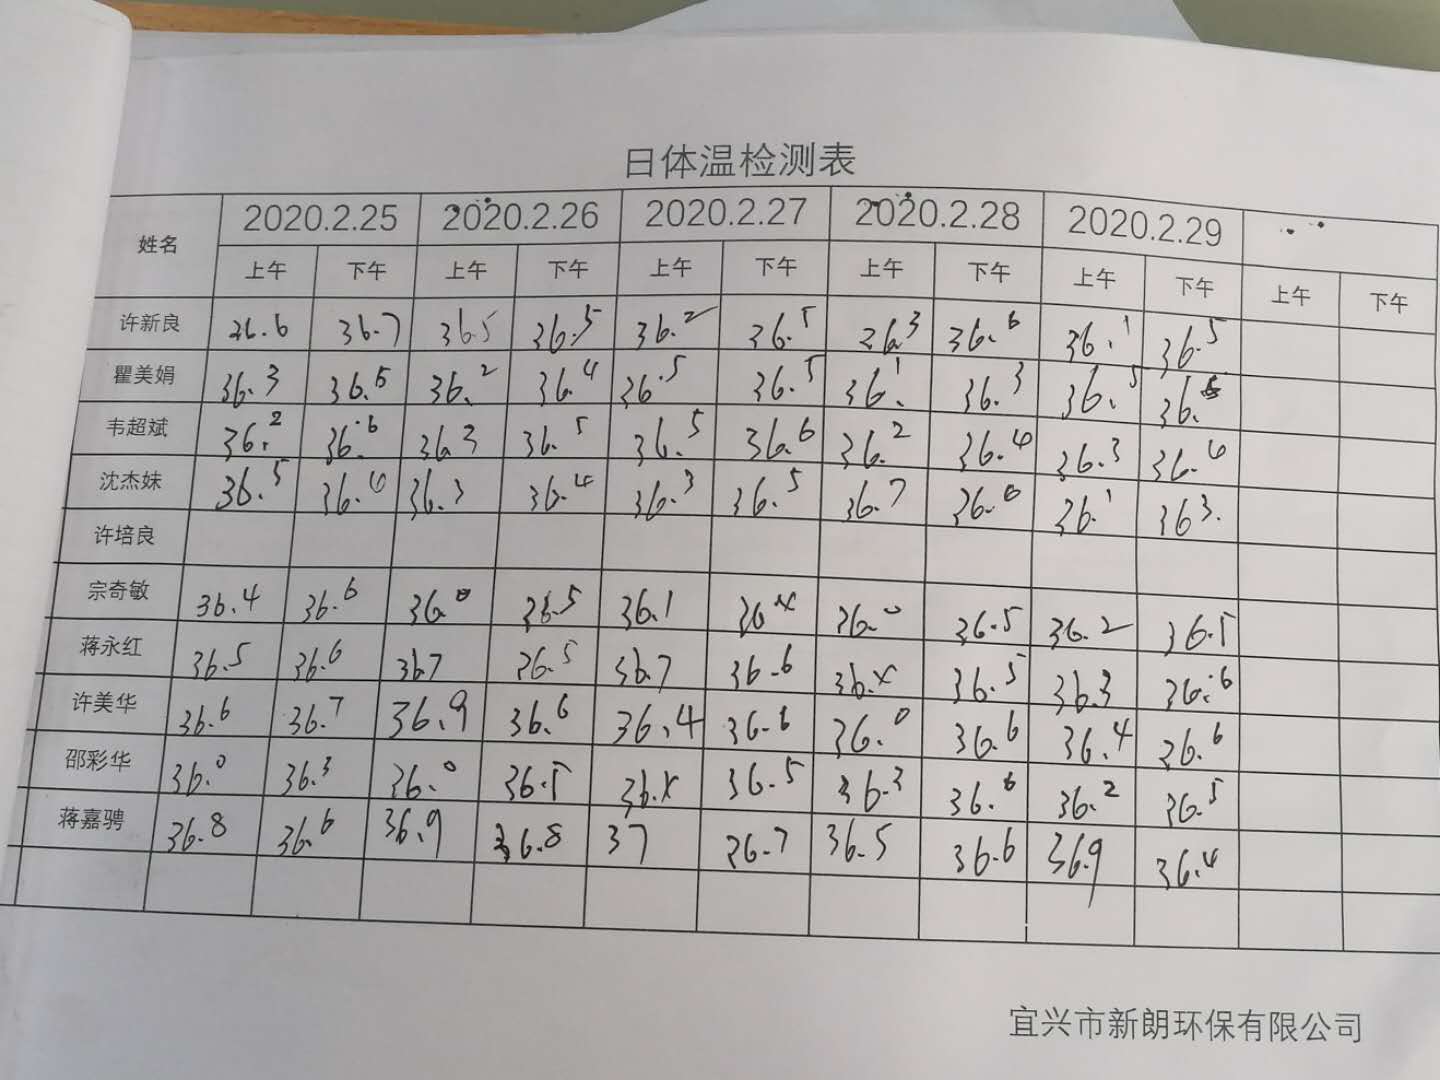 日体温检测表
姓名 2020.2.25 2020.2.26 2020.2.27 2020.2.28 2020.2.29
上午 下午 上午 下午 上午 下午 上午 下午 上午 下午 上午 下午
许新良 36.6 36.7 36.5 36.5 36.2 36.5 36.3 36.6 36.1 36.5
瞿美娟 36.3 36.5 36.2 36.4 36.5 36.5 36.1 36.3 36.5
韦超斌 36.2 36.6 36.3 36.5 36.5 36.6 36.2 36.4 36.3
沈杰妹 36.5 36.3 36.4 36.3 36.5 36.7 36.1 36 3.
许培良
宗奇敏 36.4 36.6 36.0 36.5 36.1 36.0 36.5 36.2 36.5
蒋永红 36.5 36.6 36.7 36.5 36.7 36.6 36.5 36.3 36.6
许美华 36.6 36.7 36.9 36.6 36.4 36.6 36.0 36.6 36.4 36.6
邵彩华 36.0 36.3 36.0 36.5 36.5 36.3 36.6 36.2 36.5
蒋嘉骋 36.8 36.6 36.9 36.8 37 36.7 36.5 36.6 36.9 36.4
宜兴市新朗环保有限公司